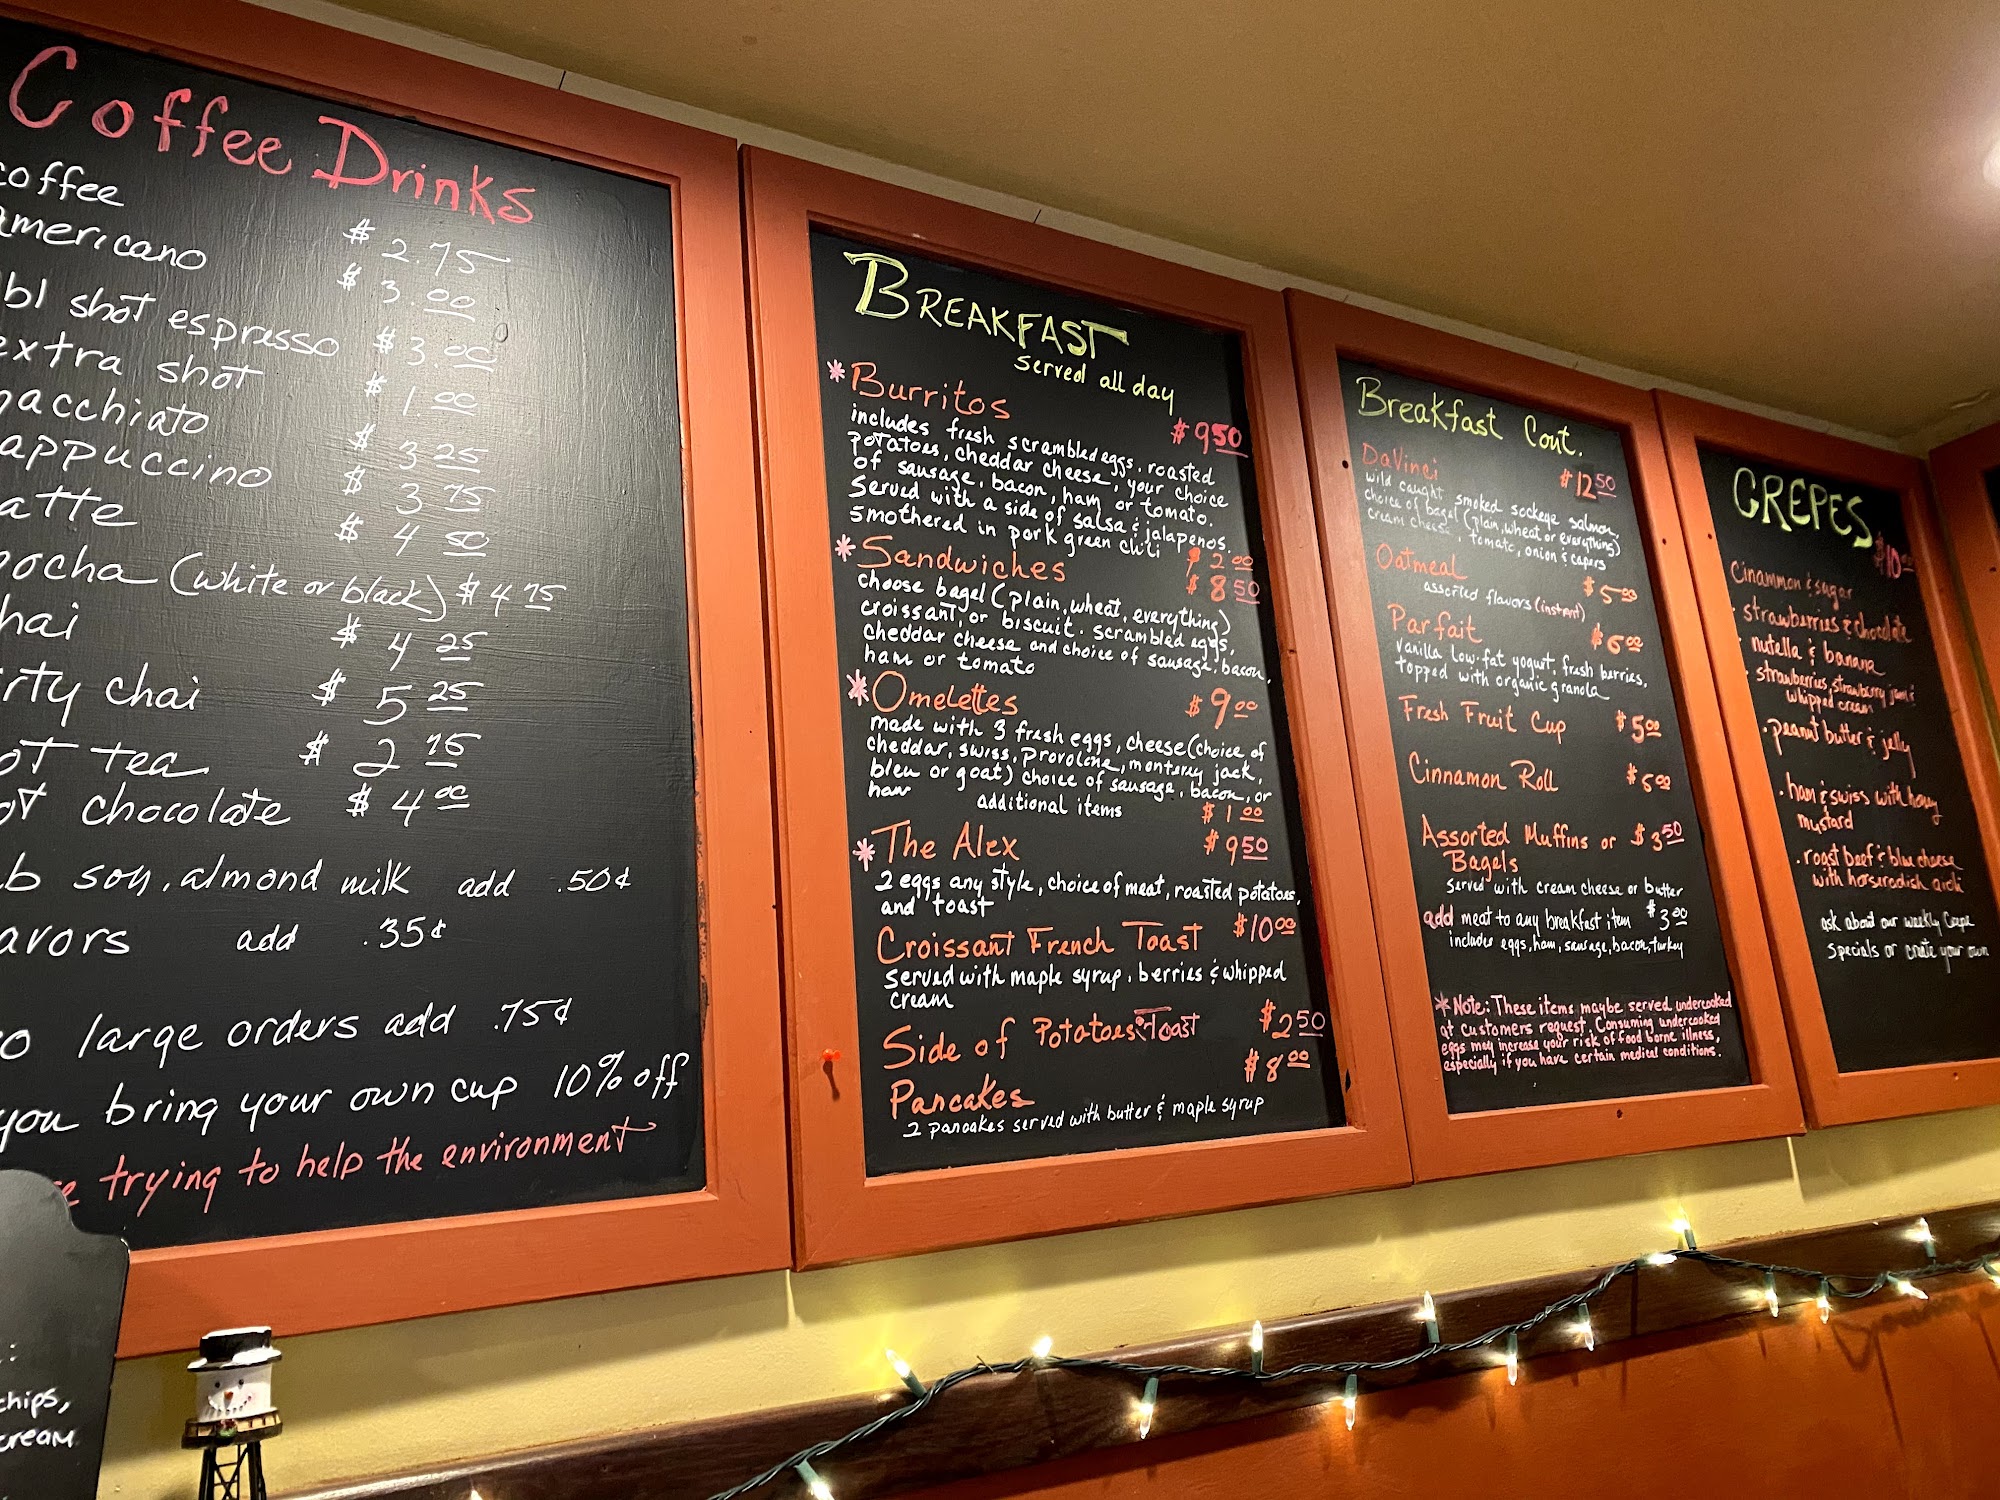 Coffee Drinks
coffee $2.75
americano $3.00
bl shot espresso $3.00
extra shot $1.00
acchiato $3.25
appuccino $3.75
atte $4.50
ocha (white or black) $4.75
hai $4.25
irty chai $5.25
ot tea $2.75
ot chocolate $4.00
b soy, almond milk add .50¢
avors add .35¢
large orders add .75¢
you bring your own cup 10% off
trying to help the environment
chips,
cream
BREAKFAST
served all day
*Burritos $9.50
includes fresh scrambled eggs, roasted
potatoes, cheddar cheese, your choice
of sausage, bacon, ham, or tomato.
Served with a side of salsa & jalapenos.
smothered in pork green chili $2.00
*Sandwiches $8.50
choose bagel (plain, wheat, everything)
croissant, or biscuit. scrambled eggs,
cheddar cheese and choice of sausage, bacon,
ham or tomato
*Omelettes $9.00
made with 3 fresh eggs, cheese (choice of
cheddar, swiss, provolone, monterey jack,
bleu or goat) choice of sausage, bacon, or
ham additional items $1.00
*The Alex $9.50
2 eggs any style, choice of meat, roasted potatoes,
and toast
Croissant French Toast $10.00
served with maple syrup, berries & whipped
cream
Side of Potatoes Toast $2.50
Pancakes $8.00
2 pancakes served with butter & maple syrup
Breakfast Cont.
DaVinci $12.50
wild caught smoked sockeye salmon,
choice of bagel (plain, wheat or everything)
cream cheese, tomato, onion & capers
Oatmeal $5.00
assorted flavors (instant)
Parfait $6.00
vanilla low-fat yogurt, fresh berries,
topped with organic granola
Fresh Fruit Cup $5.00
Cinnamon Roll $5.00
Assorted Muffins or $3.50
Bagels
served with cream cheese or butter
add meat to any breakfast item $3.00
includes eggs, ham, sausage, bacon, turkey
*Note: These items maybe served undercooked
at customers request. Consuming undercooked
eggs may increase your risk of food borne illness,
especially if you have certain medical conditions.
CREPES $10.00
Cinammon & sugar
· strawberries & chocolate
· nutella & banana
· strawberries, strawberry jam &
whipped cream
· peanut butter & jelly
· ham & swiss with honey
mustard
· roast beef & blue cheese
with horseradish aioli
ask about our weekly Crepe
specials or create your own